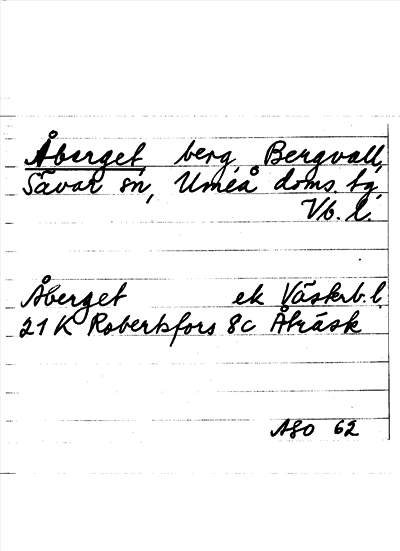 Åberget, berg, Bergvall,
Sävar sn, Umeå doms. tg,
Vb. l.
Åberget ek Västerb. l.
21 K Robertsfors 8c Åträsk
ASO 62